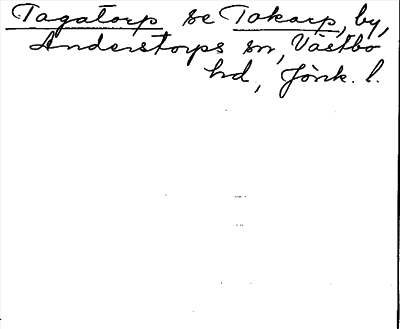 Tagatorp se Tokarp, by,
Anderstorps sn, Västbo
hd, Jönk. l.